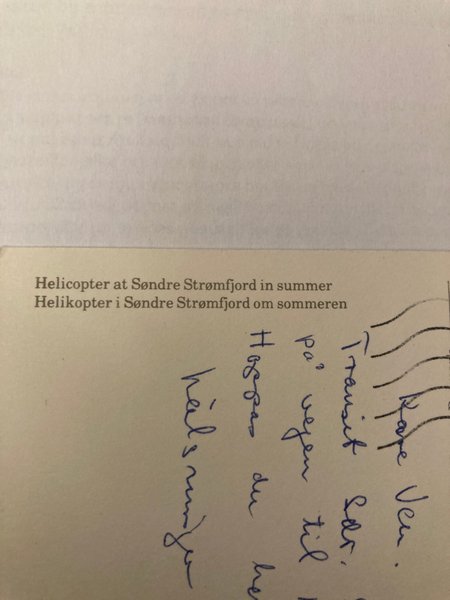 Helicopter at Søndre Strømfjord in summer
Helikopter i Søndre Strømfjord om sommeren
Kære Ven.
Transit Sdr.
på vejen til
Hoppas du
hälsningar